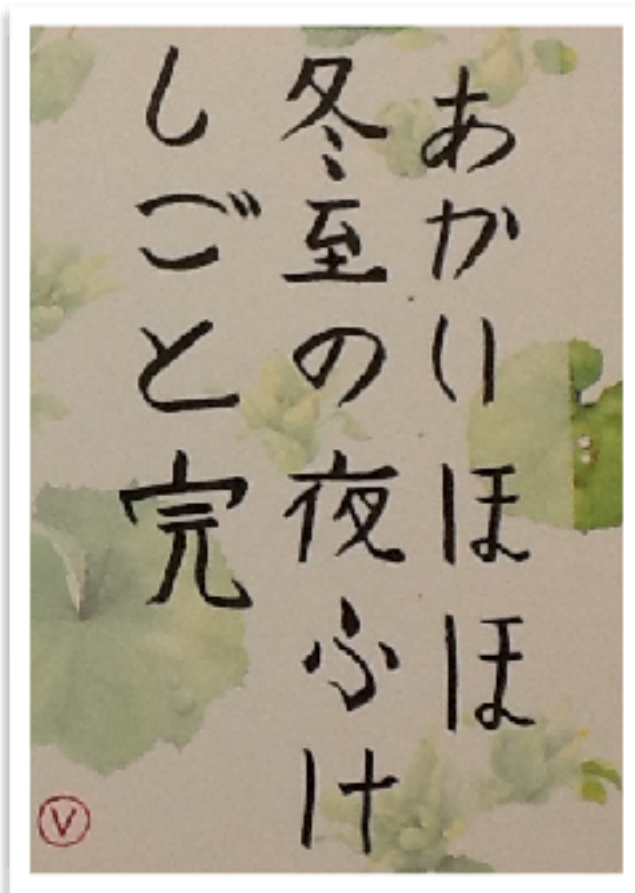 あかりほほ
冬至の夜ふけ
しごと完
V